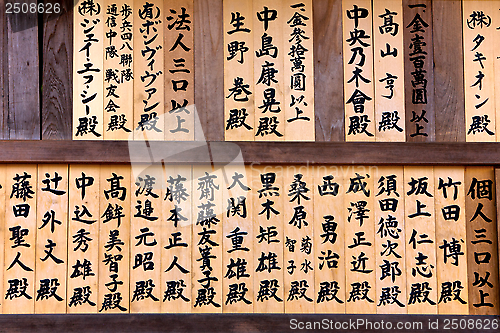 (株)タキオン 殿
金壹百萬圓
高山亨 殿
中央乃木會 殿
金参拾萬圓以上
中島康晃 殿
生野巻 殿
法人三口以上
(有)ボンヴィヴァン 殿
歩兵四八聯隊
通信中隊戦友会 殿
(株)ジェイエッシー 殿
個人三口以上
竹田博 殿
坂上仁志 殿
須田徳次郎 殿
成澤正近 殿
西勇治 殿
桑原菊水
智子 殿
黒木矩雄 殿
大関重雄 殿
齋藤友貴子 殿
藤本正人 殿
渡邉元昭 殿
高鉾美智子 殿
中込秀雄 殿
辻外文 殿
藤田聖人 殿
2508626
2508626
2508626
2508626